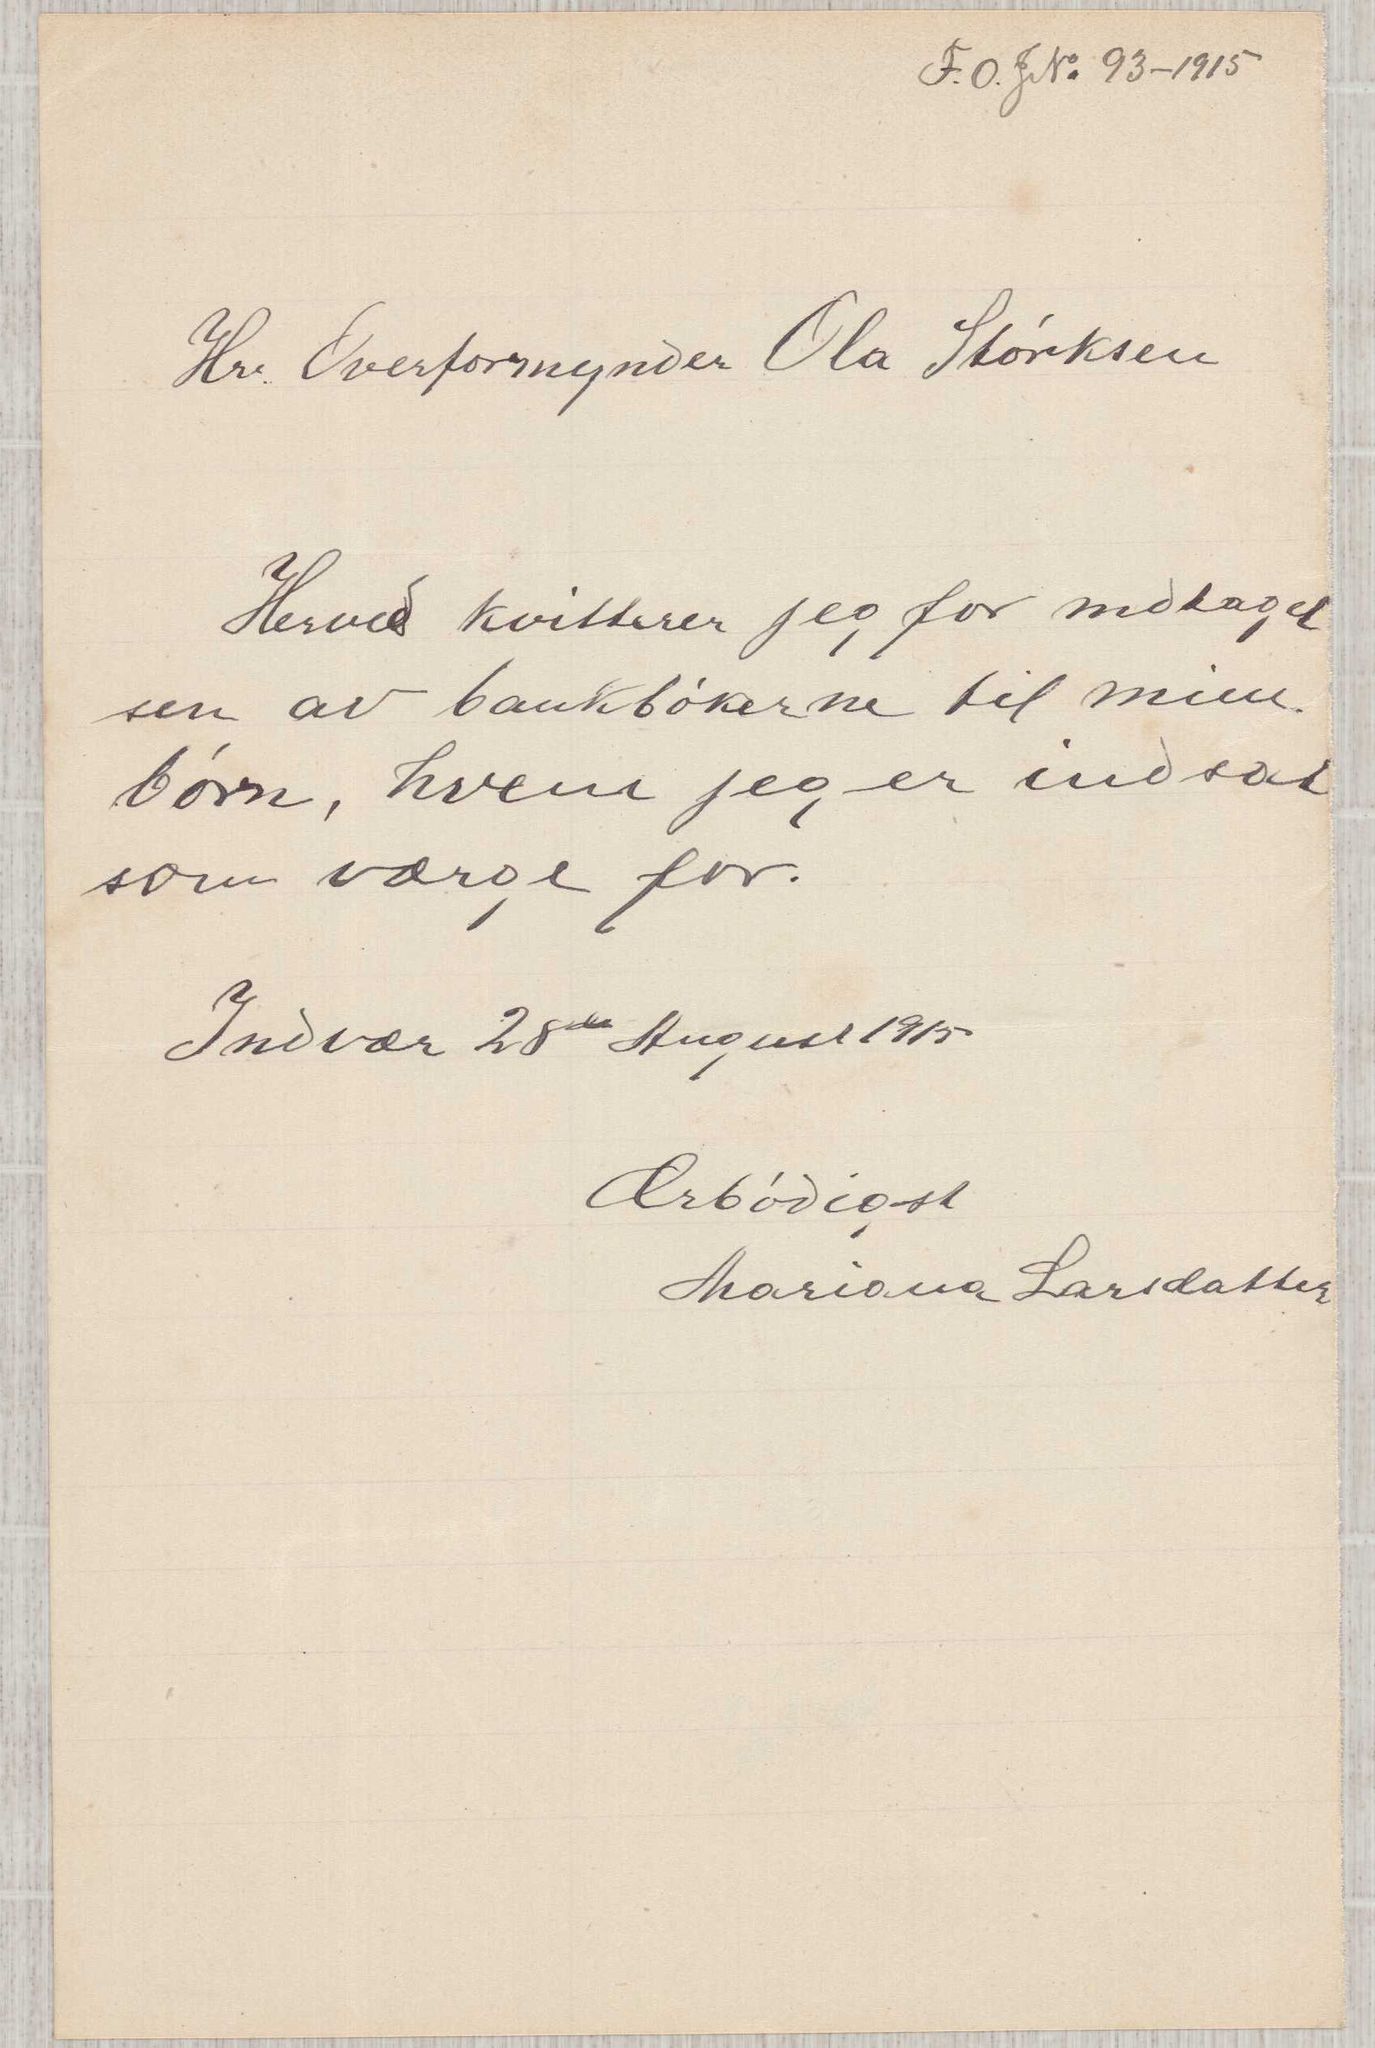 F. O. J No. 93-1915
Hr. Overformynder Ola Störksen
Herved kvitterer jeg for mdtagel
sen av bankbökerne til mine
börn, hvem jeg er indsat
som værge for.
Indvær 28de August 1915
Ærbödigst
Mariana Larsdatter